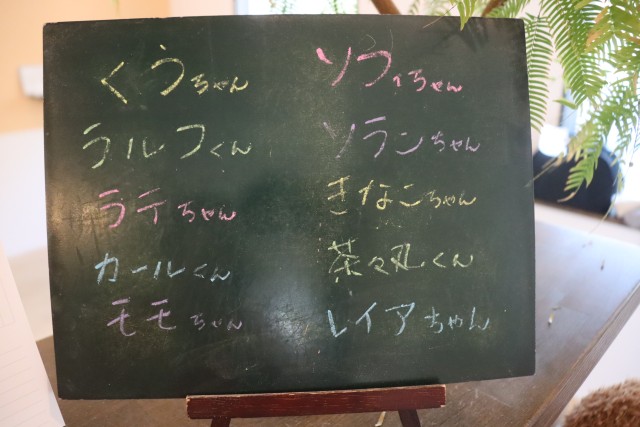 くうちゃん
ラルフくん
ラテちゃん
カールくん
モモちゃん
ソフィちゃん
ソランちゃん
きなこちゃん
茶々丸くん
レイアちゃん